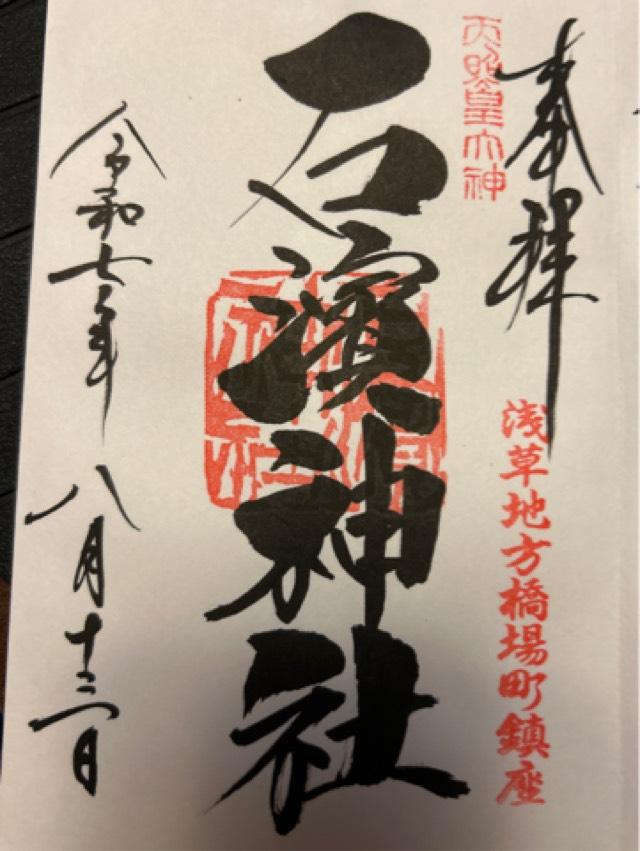 奉拝
天照皇大神
浅草地方橋場町鎮座
石濱神社
令和七年
八月十三日